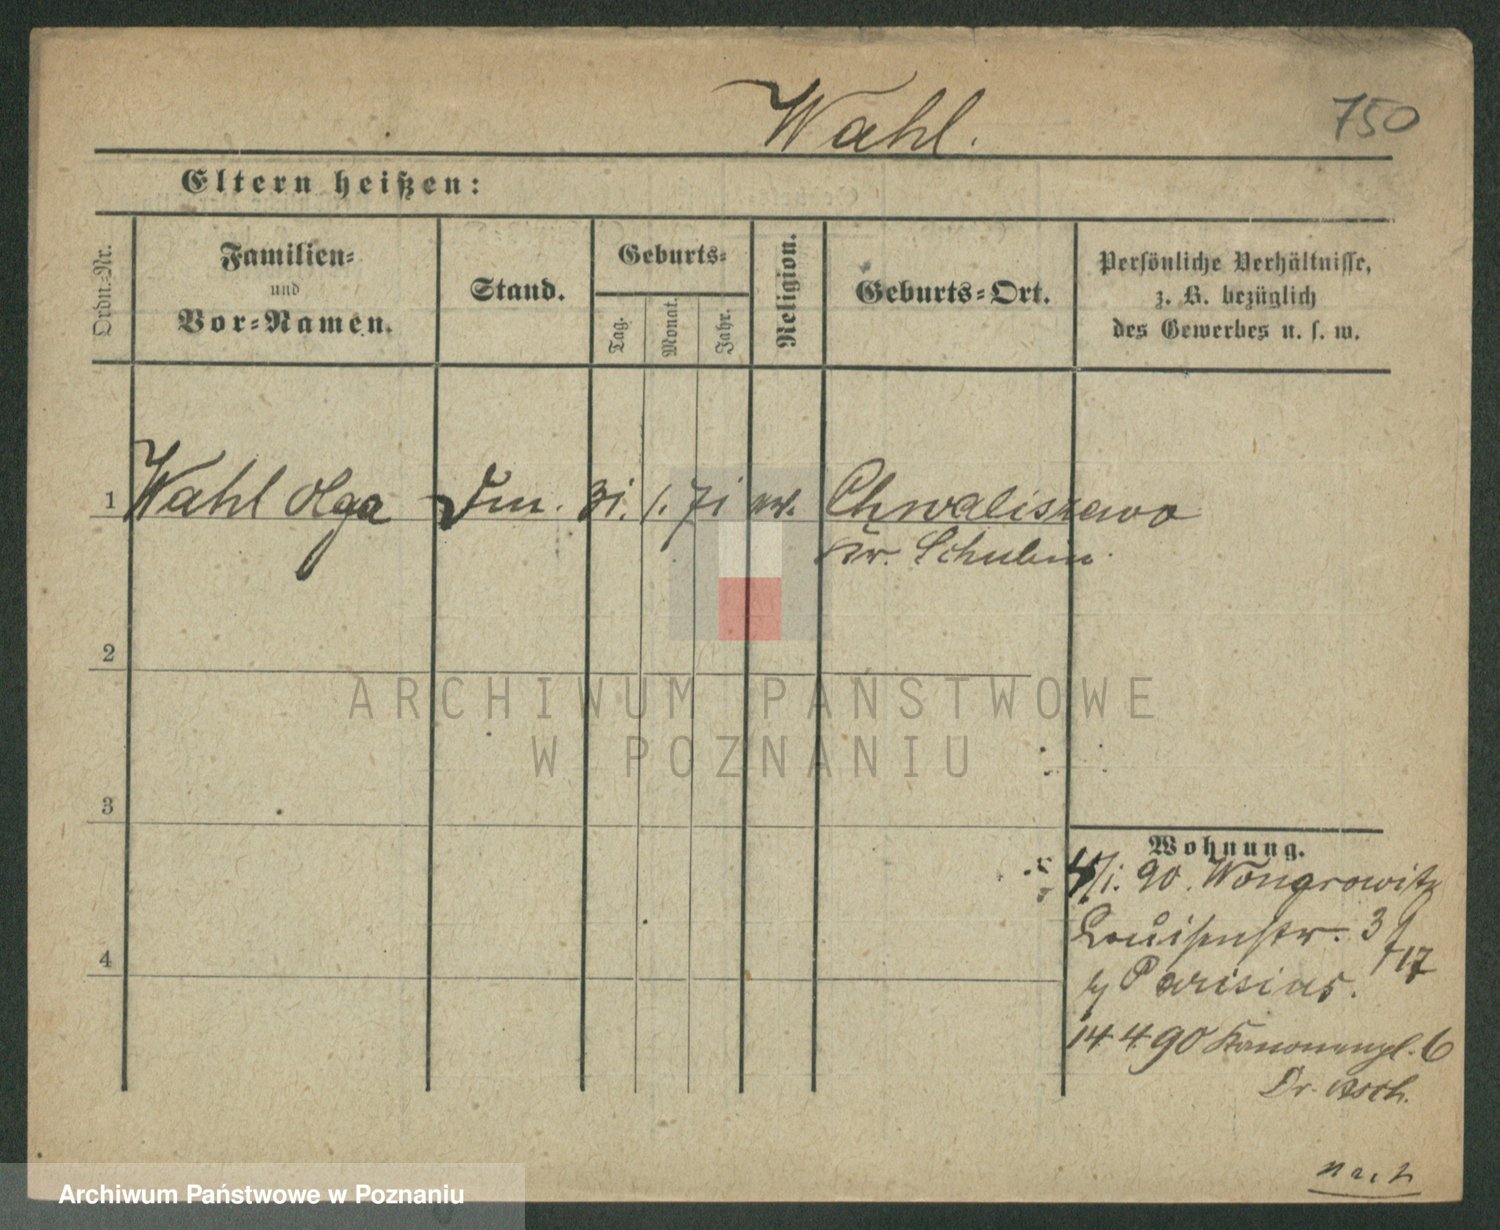 Wahl.
750
Eltern heißen:
Ordn.-Nr.
Familien-
und
Vor-Namen.
Stand.
Geburts-
Tag.
Monat.
Jahr.
Religion.
Geburts-Ort.
Persönliche Verhältnisse,
z. B. bezüglich
des Gewerbes u. s. w.
1 Wahl Olga Dm. 31. 1. 71 ev. Chwaliszewo
Kr. Schubin
2
3
4
ARCHIWUM PAŃSTWOWE
W POZNANIU
Wohnung.
4/1. 90. Wongrowitz
Louisenstr. 3
17
b/ Parisius.
14 4 90 Kanonenpl. 6
Dr. Asch.
Archiwum Państwowe w Poznaniu